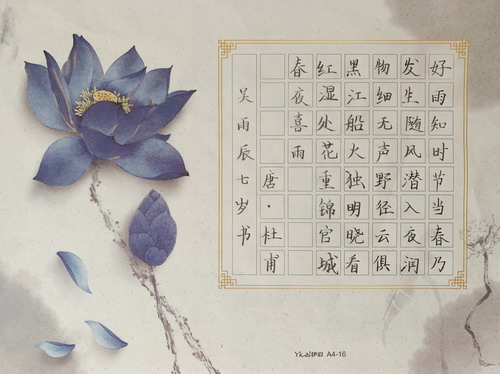 好雨知时节当春乃
发生随风潜入夜润
物细无声野径云俱
黑江船火独明晓看
红湿处花重锦官城
春夜喜雨
唐·杜甫
吴雨辰七岁书
A4-16